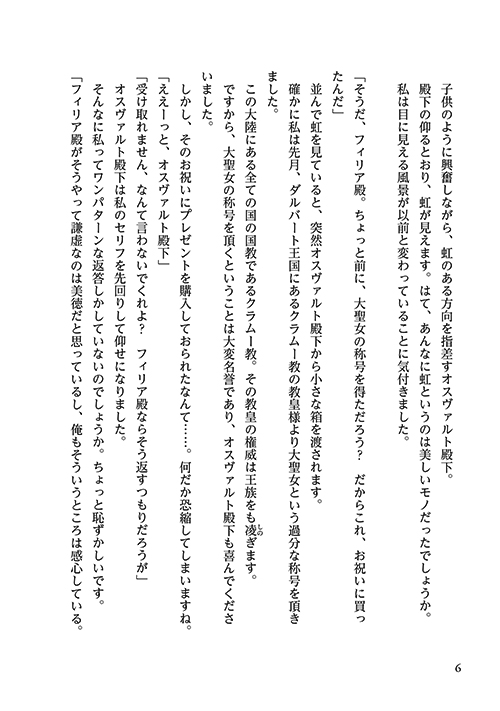 子供のように興奮しながら、虹のある方向を指差すオスヴァルト殿下。
殿下の仰るとおり、虹が見えます。はて、あんなに虹というのは美しいモノだったでしょうか。
私は目に見える風景が以前と変わっていることに気付きました。
「そうだ、フィリア殿。ちょっと前に、大聖女の称号を得ただろう？　だからこれ、お祝いに買っ
たんだ」
並んで虹を見ていると、突然オスヴァルト殿下から小さな箱を渡されます。
確かに私は先月、ダルバート王国にあるクラムー教の教皇様より大聖女という過分な称号を頂き
ました。
この大陸にある全ての国の国教であるクラムー教。その教皇の権威は王族をも凌ぎます。
しの
ですから、大聖女の称号を頂くということは大変名誉であり、オスヴァルト殿下も喜んでくださ
いました。
しかし、そのお祝いにプレゼントを購入しておられたなんて……。何だか恐縮してしまいますね。
「ええーっと、オスヴァルト殿下」
「受け取れません、なんて言わないでくれよ？　フィリア殿ならそう返すつもりだろうが」
オスヴァルト殿下は私のセリフを先回りして仰せになりました。
そんなに私ってワンパターンな返答しかしていないのでしょうか。ちょっと恥ずかしいです。
「フィリア殿がそうやって謙虚なのは美徳だと思っているし、俺もそういうところは感心している。
6